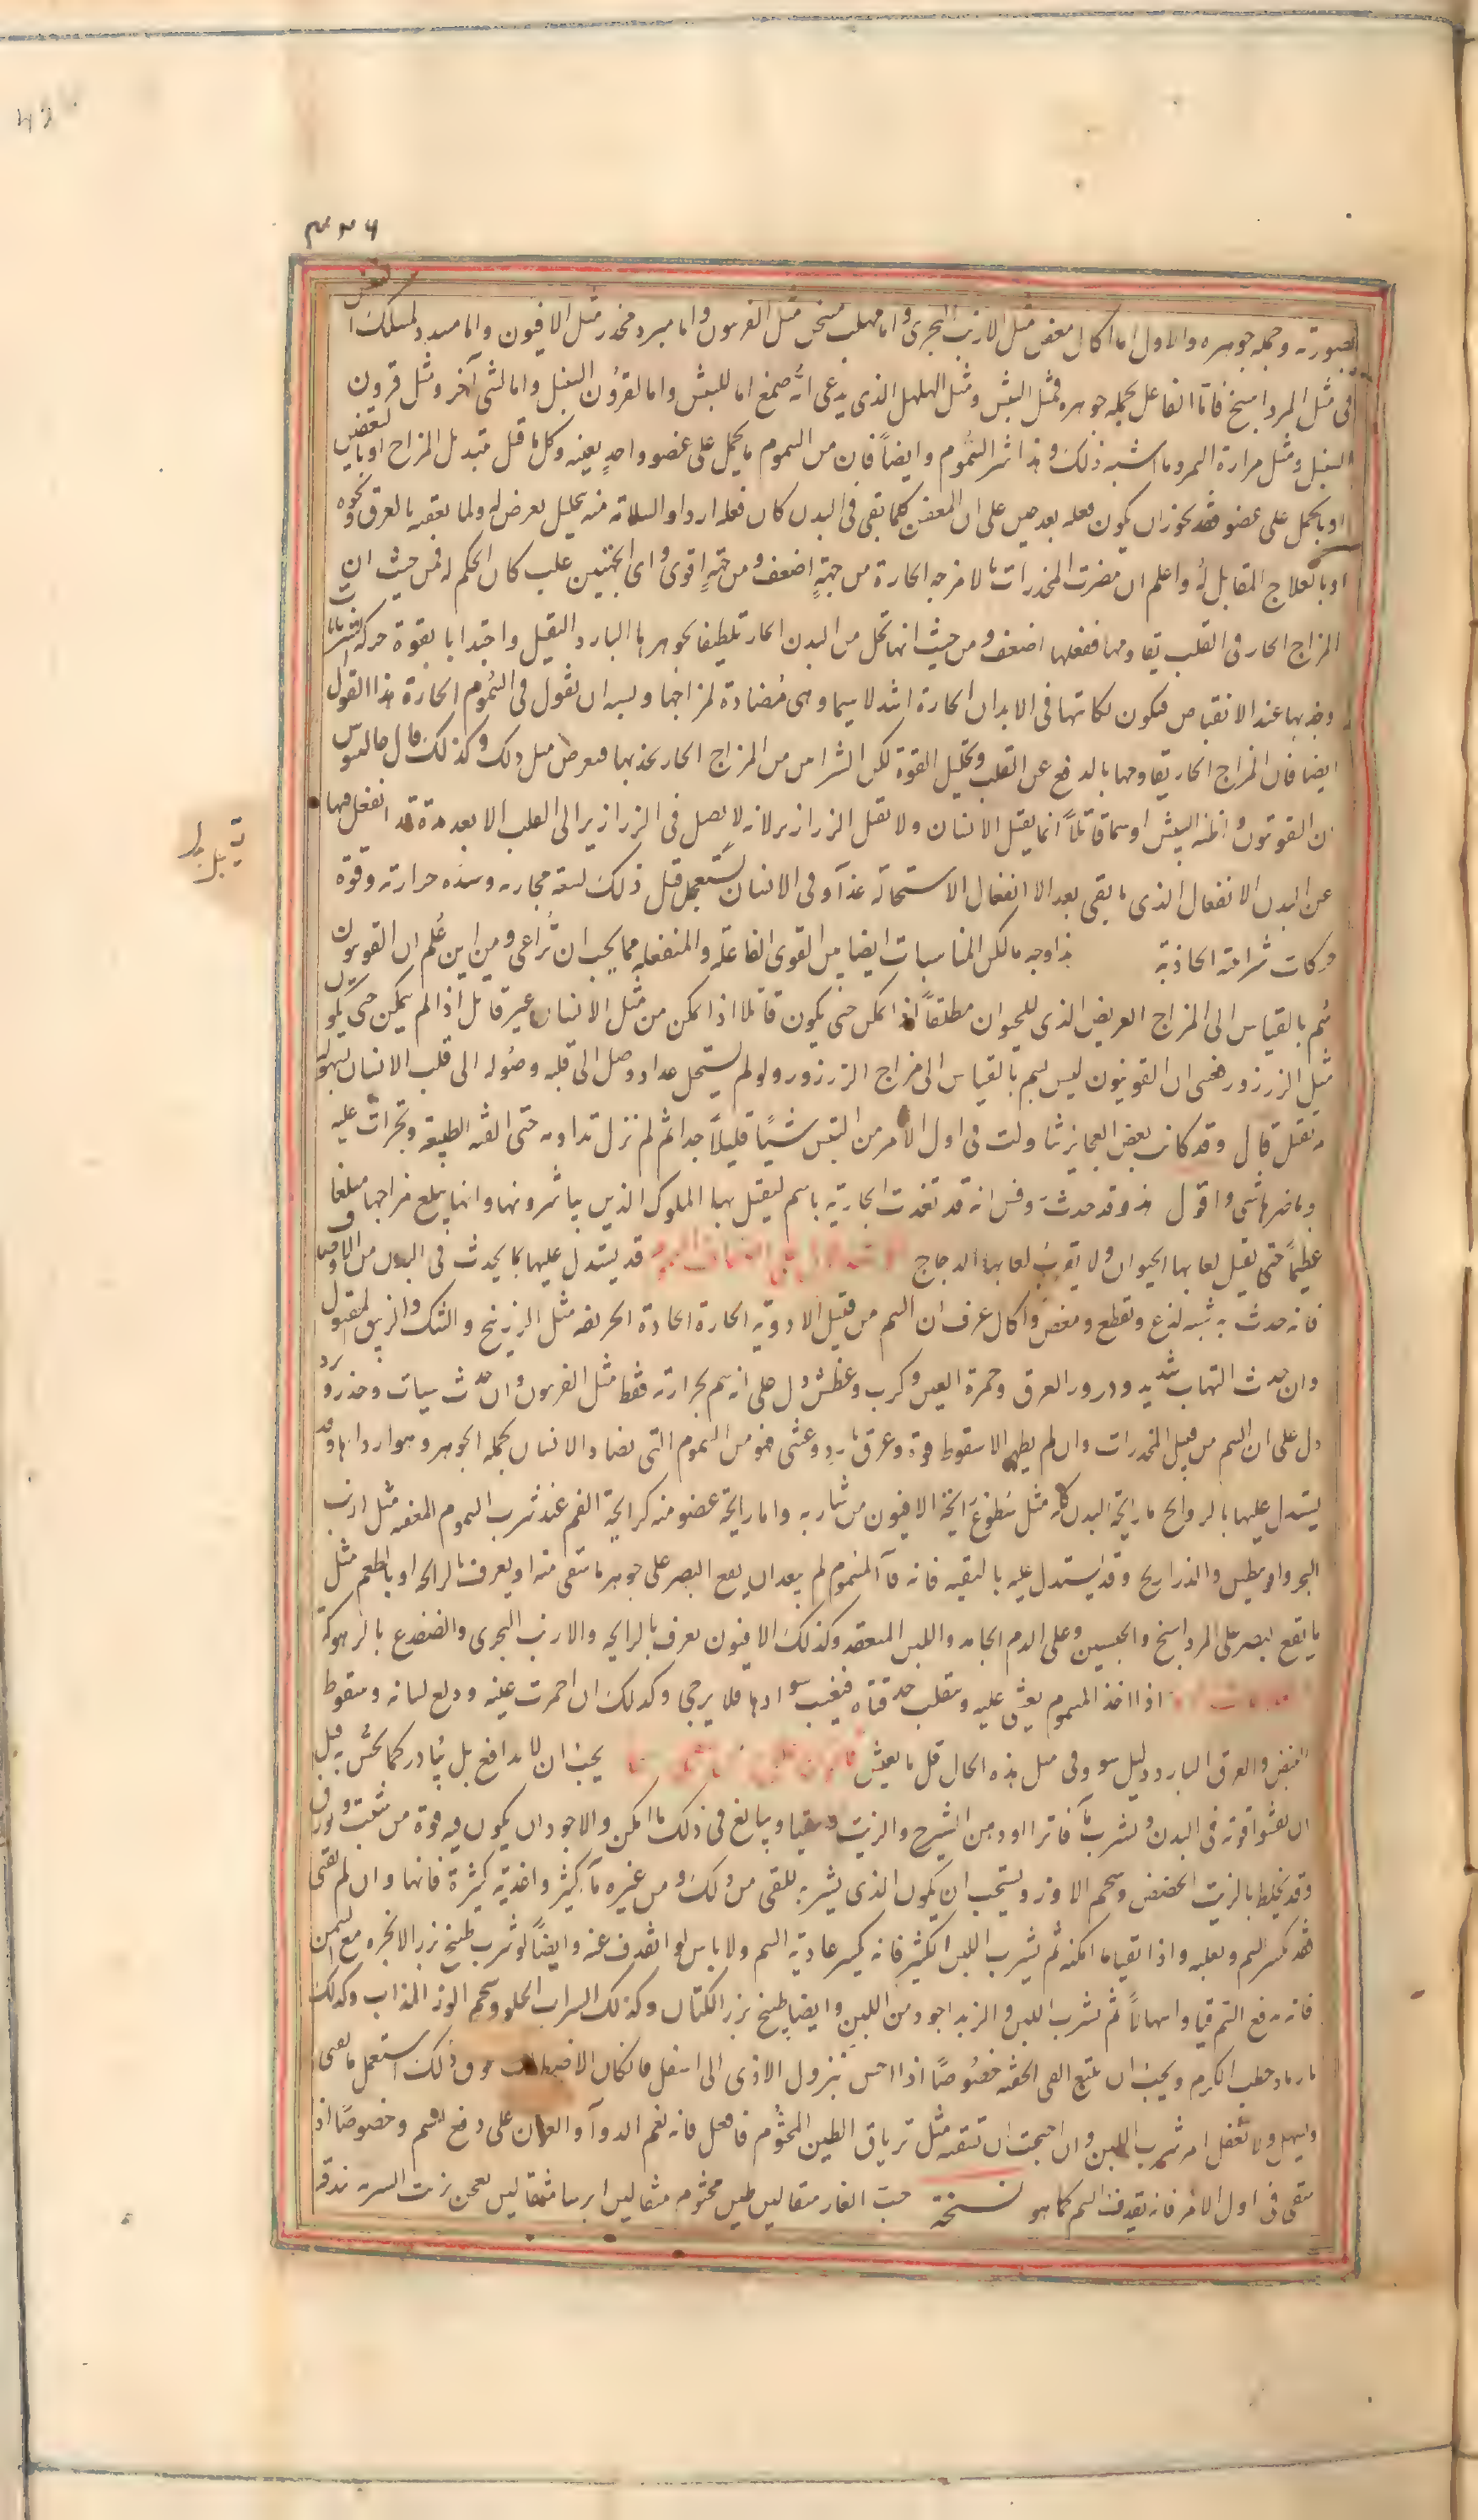 بصورته وجمله جوهره والاول اما اكال معفن مثل الارنب البحرى واما ملهب مسخن مثل الفربيون واما مبرد مخدر مثل الافيون واما مسدد لمسلك النفس
فى مثل المرداسنج فاما الفاعل بجملة جوهره فمثل البيش ومثل الهلهل الذى يدعى انه صمغ اما للبيش واما لقرون السنبل واما لشئ آخر ومثل قرون
السنبل ومثل مرارة النمر وما اشبه ذلك وهذا شر السموم وايضاً فان من السموم ما يحمل على عضو واحد بعينه وكل ما قتل بتبديل المزاج او بالتعفين
او بالحمل على عضو فقد يجوز ان يكون فعله بعد حين على ان المعفن كلما بقى فى البدن كان فعله اردا والسلامة منه بتحليل يعرض له ولما يعقبه بالعرق ونحوه
او بالعلاج المقابل له واعلم ان مضرة المخدرات بالامزجه الحارة من جهةٍ اضعف ومن جهةٍ اقوى واى الجهتين غلب كان الحكم له فمن حيث ان
المزاج الحار فى القلب يقاومها ففعلها اضعف ومن حيث انها تحل من البدن الحار تلطيفا لجوهرها البارد الثقيل واجتذابا بقوة حركة الشريانات
وجذبها عند الانقباض فيكون نكايتها فى الابدان الحارة اشد لا سيما وهى مضادة لمزاجها ويشبه ان نقول فى السموم الحارة هذا القول
ايضا فان المزاج الحار يقاومها بالدفع عن القلب وتحليل القوة لكن الشرايين من المزاج الحار تجذبها فيعرض مثل ذلك وكذلك قال جالينوس
ان القونيون واظنه البيش او سما قاتلاً انما يقتل الانسان ولا يقتل الزرازير لانه لا يصل فى الزرازير الى القلب الا بعد مدة قد انفعل فيها
عن البدن الانفعال الذى ما بقى بعد الا انفعال الاستحالة غذآء وفى الانسان يستعمل قبل ذلك لسعة مجاريه وشدة حرارته وقوة
حركات شرايينه الجاذبة هذا وجه ما لكن المناسبات ايضا بين القوى الفاعلة والمنفعلة مما يجب ان تُراعى ومن اين عُلم ان القونيون
سم بالقياس الى المزاج العريض الذى للحيوان مطلقاً اذا تمكن حتى يكون قاتلا اذا تمكن من مثل الانسان غير قاتل اذا لم يتمكن حتى يكون
مثل الزرزور فعسى ان القونيون ليس بسم بالقياس الى مزاج الزرزور ولو لم يستحل غذاء ووصل الى قلبه وصوله الى قلب الانسان بسهولة
لم يقتل قال وقد كانت بعض العجايز تناولت فى اول الامر من البيش شيئًا قليلاً جدا ثم لم تزل تداومه حتى الفته الطبيعة وتجرات عليه
وما ضرها شئ واقول هذا وقد حدث روفس انه قد تغذت الجارية بالسم ليقتل بها الملوك الذين يباشرونها وانها يبلغ مزاجها مبلغا
عظيماً حتى يقتل لعابها الحيوان ولا يقرب لعابها الدجاج قد يستدل عليها بما يحدث فى البدن من الاوجاع
فانه حدث به شبه لذع وتقطع ومغص واكال عرف ان السم من قبيل الادوية الحارة الحادة الحريفة مثل الزرنيخ والشك والزيبق المقتول
وان حدث التهاب شديد ودرور العرق وحمرة العين وكرب وعطش دل على انه سم بحرارته فقط مثل الفربيون وان حدث سبات وخدر وبرد
دل على ان السم من قبيل المخدرات وان لم يظهر الا سقوط قوة وعرق بارد وغشى فهو من السموم التى تضاد الانسان بجملة الجوهر وهو اردا ها وقد
يستدل عليها بالروايح ما رايحة البدن كله مثل سطوع رايحة الافيون من شاربه واما رايحة عضو منه كرايحة الفم عند شرب السموم المعفنه مثل ارنب
البحر واوبيطس والذراريح وقد يستدل عليه بالتقيه فانه قآ المسموم لم يبعد ان يقع البصر على جوهر ما سقى منه او يعرف بالرايحه او بالطعم مثل
ما يقع البصر على المرداسنج والجبسين وعلى الدم الجامد واللبن المنعقد وكذلك الافيون يعرف بالرايحه والارنب البحرى والضفدع بالزهوكة
اذا اخذ المسموم يغشى عليه وتنقلب حدقتاه فيغيب سوادها فلا يرجى وكذلك ان احمرت عينه ودلع لسانه وسقوط
النبض والعرق البارد دليل سو وفى مثل هذه الحال قل ما يعيش يجب ان لا يدافع بل يُبادر كما يحس به قبل
ان تفشو قوته فى البدن ويشرب مآ فاترا ودهن الشيرج والزيت ويتقيا ويبالغ فى ذلك ما امكن والاجود ان يكون فيه قوة من شبت وبورق
وقد يخلط بالزيت الحضض وشحم الاوز ويستحب ان يكون الذى يشربه للقى من ذلك ومن غيره مآء كثير واغذية كثيرة فانها وان لم تقى
فقد تكسر السم وتغلبه واذا تقيا ما امكنه ثم يشرب اللبن الكثير فانه يكسر عادية السم ولا باس لو انقذف عنه وايضاً لو شرب طبخ بزر الانجره مع السمن
فانه يدفع السم قيا واسهالاً ثم يشرب اللبن والزبد اجود من اللبن وايضا طبخ بزر الكتان وكذلك الشراب الحلو وشحم الوز المذاب وكذلك
ما رماد حطب الكرم ويجب ان يتبع القى الحقنة خصوصًا اذا احس بنزول الاذى الى اسفل فان كان الاضطراب فوق ذلك استعمل ما يقى
ويسهل ولا تغفل امر شرب اللبن وان احتجت ان تسقيه مثل ترياق الطين المختوم فافعل فانه نعم الدوآء والعون على دفع السم وخصوصًا اذا
سقى فى اول الامر فانه يقذف السم كما هو نسخته حب الغار مثقالين طين مختوم مثقالين ايرسا مثقالين يعجن بزيت الشربة بندقة